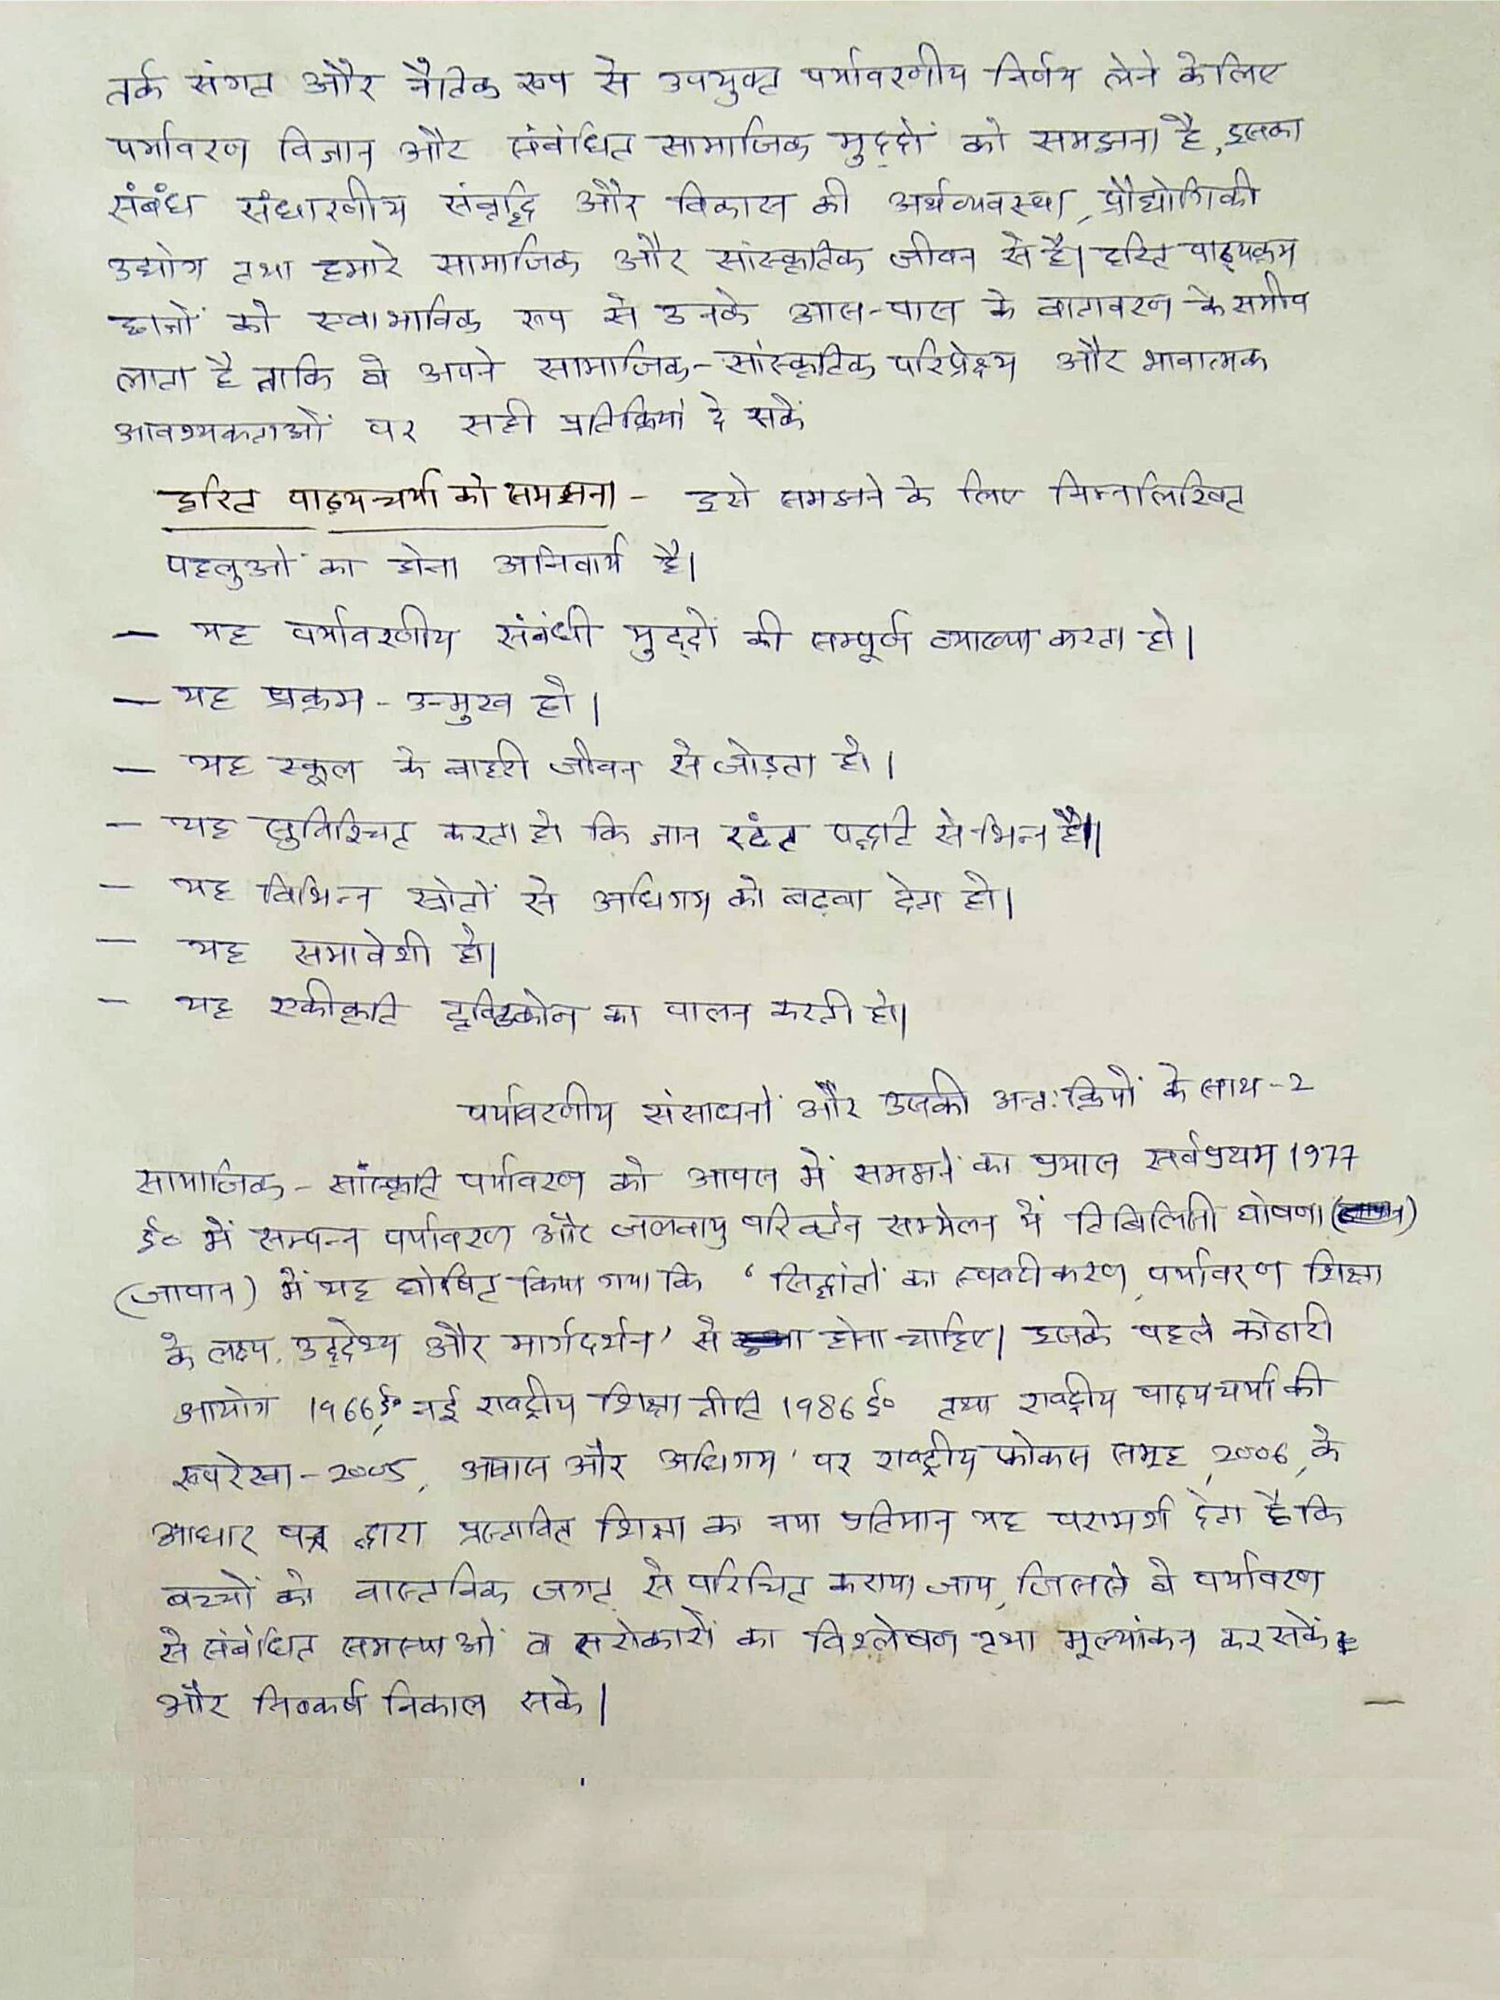 तर्क संगत और नैतिक रूप से उपयुक्त पर्यावरणीय निर्णय लेने के लिए
पर्यावरण विज्ञान और संबंधित सामाजिक मुद्दों को समझना है, इसका
संबंध संधारणीय संवृद्धि और विकास की अर्थव्यवस्था, प्रौद्योगिकी
उद्योग तथा हमारे सामाजिक और सांस्कृतिक जीवन से है। हरित पाठ्यक्रम
छात्रों को स्वाभाविक रूप से उनके आस-पास के वातावरण के समीप
लाता है ताकि वे अपने सामाजिक-सांस्कृतिक परिप्रेक्ष्य और भावात्मक
आवश्यकताओं पर सही प्रतिक्रियां दे सकें
हरित पाठ्यचर्या को समझना - इसे समझने के लिए निम्नलिखित
पहलुओं का होना अनिवार्य है।
— यह पर्यावरणीय संबंधी मुद्दों की सम्पूर्ण व्याख्या करता हो।
— यह प्रक्रम - उन्मुख हो।
— यह स्कूल के बाहरी जीवन से जोड़ता हो।
— यह सुनिश्चित करता हो कि ज्ञान रटंत पद्धति से भिन्न है।
— यह विभिन्न स्त्रोतों से अधिगम को बढ़वा देता हो।
— यह समावेशी हो।
— यह एकीकृति दृष्टिकोन का पालन करती हो।
पर्यावरणीय संसाधनों और उसकी अन्तःक्रियों के साथ-2
सामाजिक - सांस्कृति पर्यावरण को आपस में समझनें का प्रयास सर्वप्रथम 1977
ई० में सम्पन्न पर्यावरण और जलवायु परिवर्तन सम्मेलन में तिबिलिसी घोषणा
(जापान) में यह घोषित किया गया कि 'सिद्धांतों का स्पष्टीकरण, पर्यावरण शिक्षा
के लक्ष्य, उद्देश्य और मार्गदर्शन' से होना चाहिए। इसके पहले कोठारी
आयोग 1966ई०, नई राष्ट्रीय शिक्षा नीति 1986 ई० तथा राष्ट्रीय पाठ्यचर्या की
रूपरेखा - 2005, आवास और अधिगम' पर राष्ट्रीय फोकस समूह, 2006, के
आधार पत्र द्वारा प्रस्तावित शिक्षा का नया प्रतिमान यह परामर्श देता है कि
बच्चों को वास्तविक जगत् से परिचित कराया जाय, जिससे वे पर्यावरण
से संबंधित समस्याओं व सरोकारों का विश्लेषण तथा मूल्यांकन कर सकें
और निष्कर्ष निकाल सके।